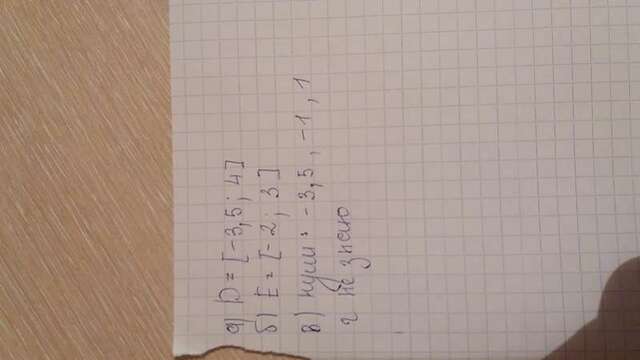 а) D = [-3,5; 4]
б) E = [-2; 3]
в) нули: -3,5, -1, 1
г не знаю